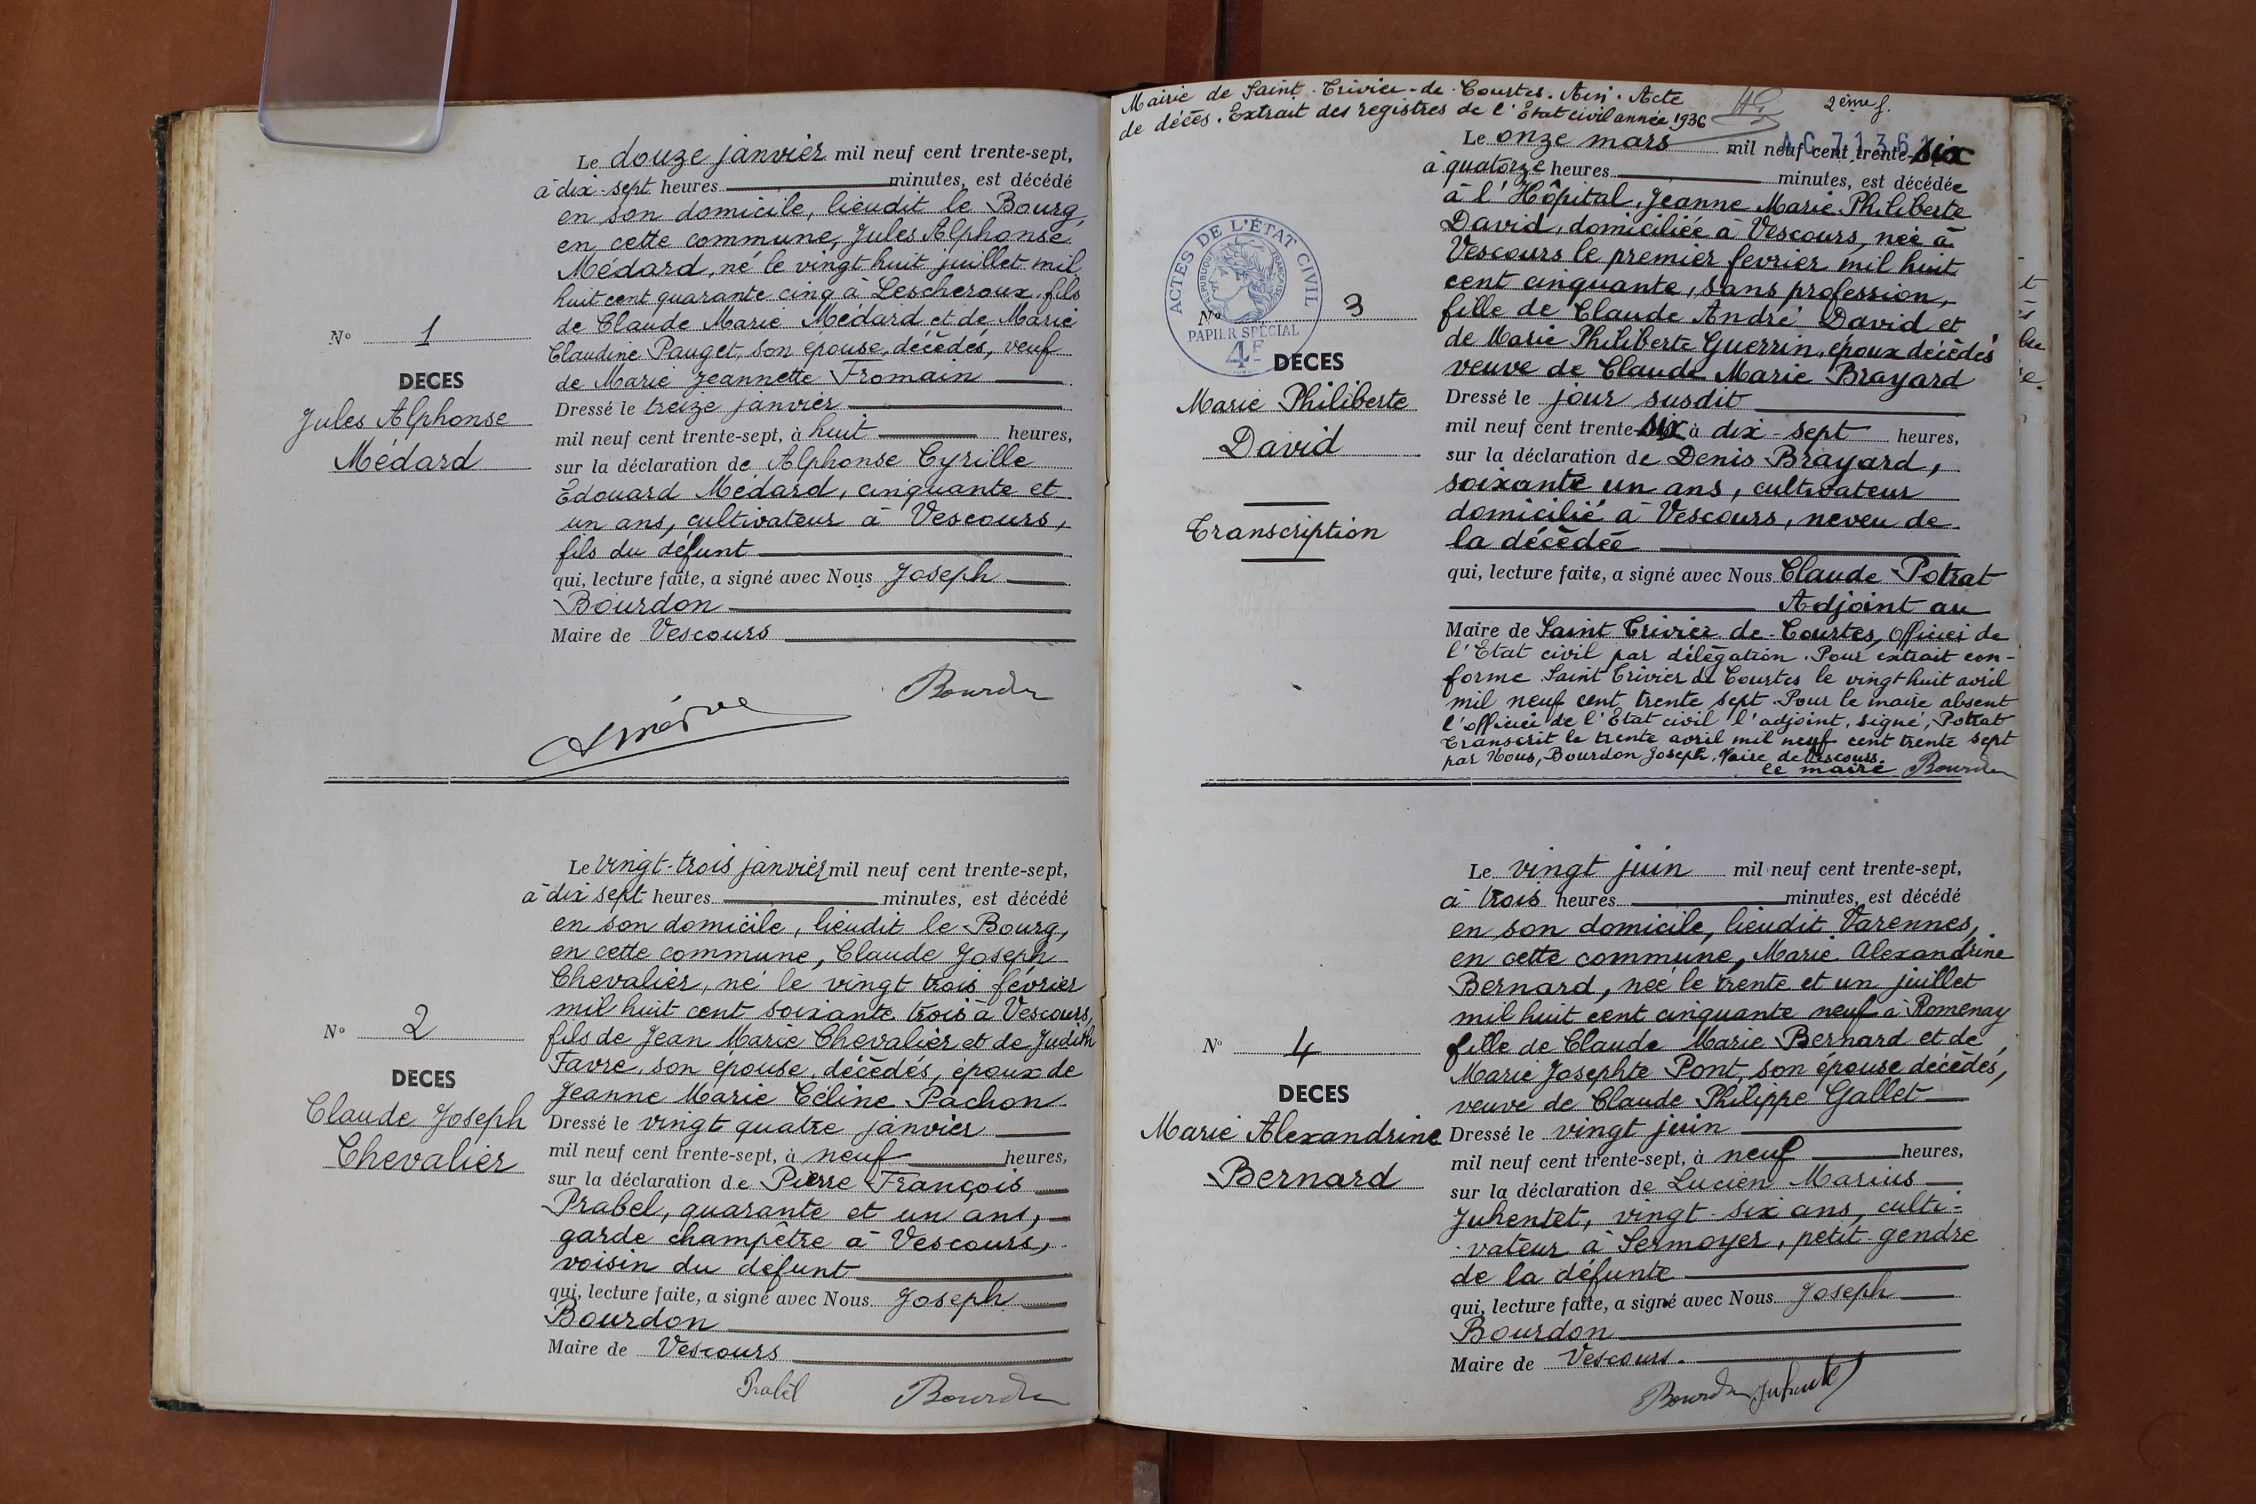 Le douze janvier mil neuf cent trente-sept,
à dix-sept heures minutes, est décédé
en son domicile, lieudit le Bourg,
en cette commune, Jules Alphonse
Médard, né le vingt huit juillet mil
huit cent quarante cinq à Lescheroux, fils
de Claude Marie Médard et de Marie
N° 1
Claudine Pauget, son épouse, décédés, veuf
DECES
de Marie Jeannette Fromain
Jules Alphonse
Médard
Dressé le treize janvier
mil neuf cent trente-sept, à huit heures,
sur la déclaration de Alphonse Cyrille
Edouard Médard, cinquante et
un ans, cultivateur à Vescours,
fils du défunt
qui, lecture faite, a signé avec Nous Joseph
Bourdon
Maire de Vescours
Bourdon
Le vingt-trois janvier mil neuf cent trente-sept,
à dix sept heures minutes, est décédé
en son domicile, lieudit le Bourg,
en cette commune, Claude Joseph
Chevalier, né le vingt trois février
mil huit cent soixante trois à Vescours,
N° 2
fils de Jean Marie Chevalier et de Judith
Favre, son épouse, décédés, époux de
DECES
Jeanne Marie Céline Pachon
Claude Joseph
Chevalier
Dressé le vingt quatre janvier
mil neuf cent trente-sept, à neuf heures,
sur la déclaration de Pierre François
Prabel, quarante et un ans,
garde champêtre à Vescours,
voisin du défunt
qui, lecture faite, a signé avec Nous Joseph
Bourdon
Maire de Vescours
Prabel Bourdon
Mairie de Saint-Trivier-de-Courtes. Ain. Acte
de décès. Extrait des registres de l'Etat civil année 1936
2ème f.
Le onze mars mil neuf cent trente-six
à quatorze heures minutes, est décédée
à l'Hôpital, Jeanne Marie Philiberte
David, domiciliée à Vescours, née à
Vescours le premier fevrier mil huit
cent cinquante, sans profession,
ACTES DE L'ÉTAT CIVIL
RÉPUBLIQUE FRANÇAISE
PAPIER SPÉCIAL
4F
N° 3
fille de Claude André David et
de Marie Philiberte Guerrin, époux décédés
DECES
veuve de Claude Marie Brayard
Marie Philiberte
David
Transcription
Dressé le jour susdit
mil neuf cent trente-six à dix-sept heures,
sur la déclaration de Denis Brayard,
soixante un ans, cultivateur
domicilié à Vescours, neveu de
la décédée
qui, lecture faite, a signé avec Nous Claude Potrat
Adjoint au
Maire de Saint Trivier de Courtes, Officier de
l'Etat civil par délégation. Pour extrait con-
forme Saint Trivier de Courtes le vingt huit avril
mil neuf cent trente sept. Pour le maire absent
l'officier de l'Etat civil l'adjoint, signé, Potrat
Transcrit le trente avril mil neuf cent trente sept
par Nous, Bourdon Joseph, Maire de Vescours.
Le maire Bourdon
Le vingt juin mil neuf cent trente-sept,
à trois heures minutes, est décédé
en son domicile, lieudit Varennes,
en cette commune, Marie Alexandrine
Bernard, née le trente et un juillet
mil huit cent cinquante neuf à Romenay
N° 4
fille de Claude Marie Bernard et de
Marie Josephte Pont, son épouse décédés,
DECES
veuve de Claude Philippe Gallet
Marie Alexandrine
Bernard
Dressé le vingt juin
mil neuf cent trente-sept, à neuf heures,
sur la déclaration de Lucien Marius
Juhentet, vingt-six ans, culti-
vateur à Sermoyer, petit-gendre
de la défunte
qui, lecture faite, a signé avec Nous Joseph
Bourdon
Maire de Vescours.
Bourdon Juhentet